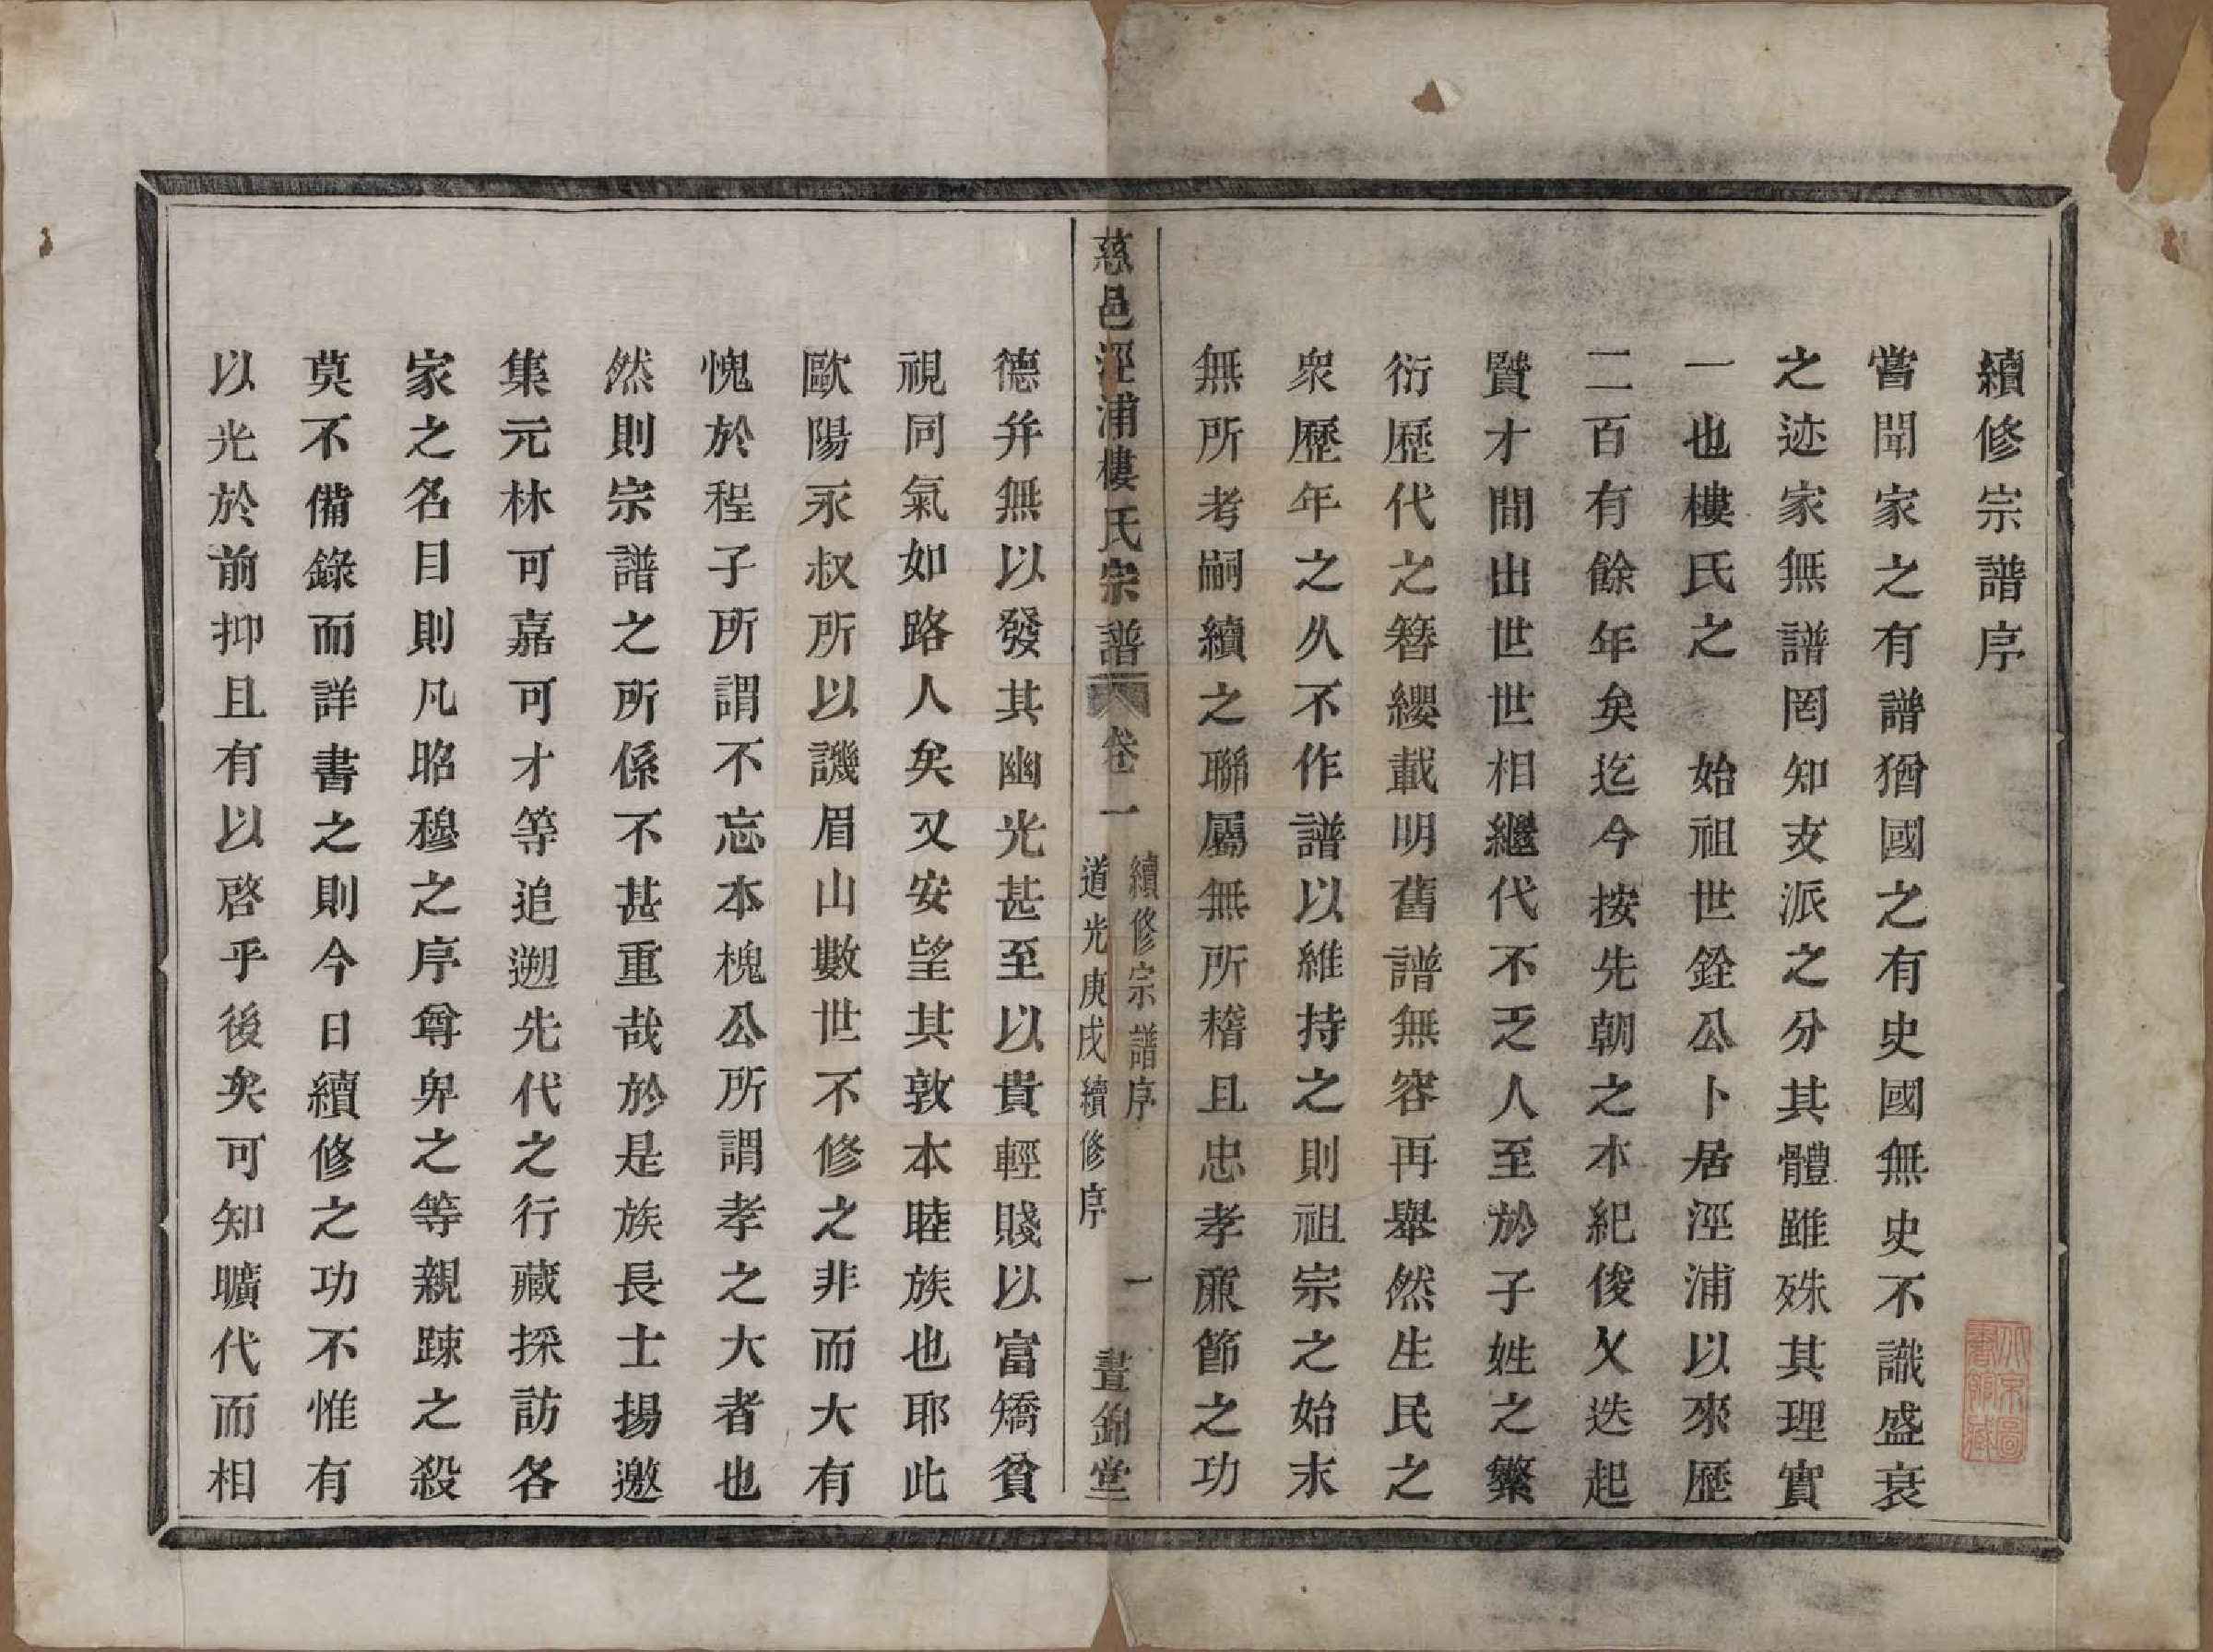 續修宗譜序
嘗聞家之有譜猶國之有史國無史不識盛衰
之迹家無譜罔知支派之分其體雖殊其理實
一也樓氏之　始祖世銓公卜居涇浦以來歷
二百有餘年矣迄今按先朝之本紀俊乂迭起
賢才間出世世相繼代不乏人至於子姓之繁
衍歷代之簪纓載明舊譜無容再舉然生民之
衆歷年之久不作譜以維持之則祖宗之始末
無所考嗣續之聯屬無所稽且忠孝廉節之功
慈邑涇浦樓氏宗譜 卷一 續修宗譜序 道光庚戌續修序 一 晝錦堂
德幷無以發其幽光甚至以貴輕賤以富矯貧
視同氣如路人矣又安望其敦本睦族也耶此
歐陽永叔所以譏眉山數世不修之非而大有
愧於程子所謂不忘本槐公所謂孝之大者也
然則宗譜之所係不甚重哉於是族長士揚邀
集元林可嘉可才等追遡先代之行藏採訪各
家之名目則凡昭穆之序尊卑之等親疎之殺
莫不備錄而詳書之則今日續修之功不惟有
以光於前抑且有以啓乎後矣可知曠代而相
北京圖書館藏